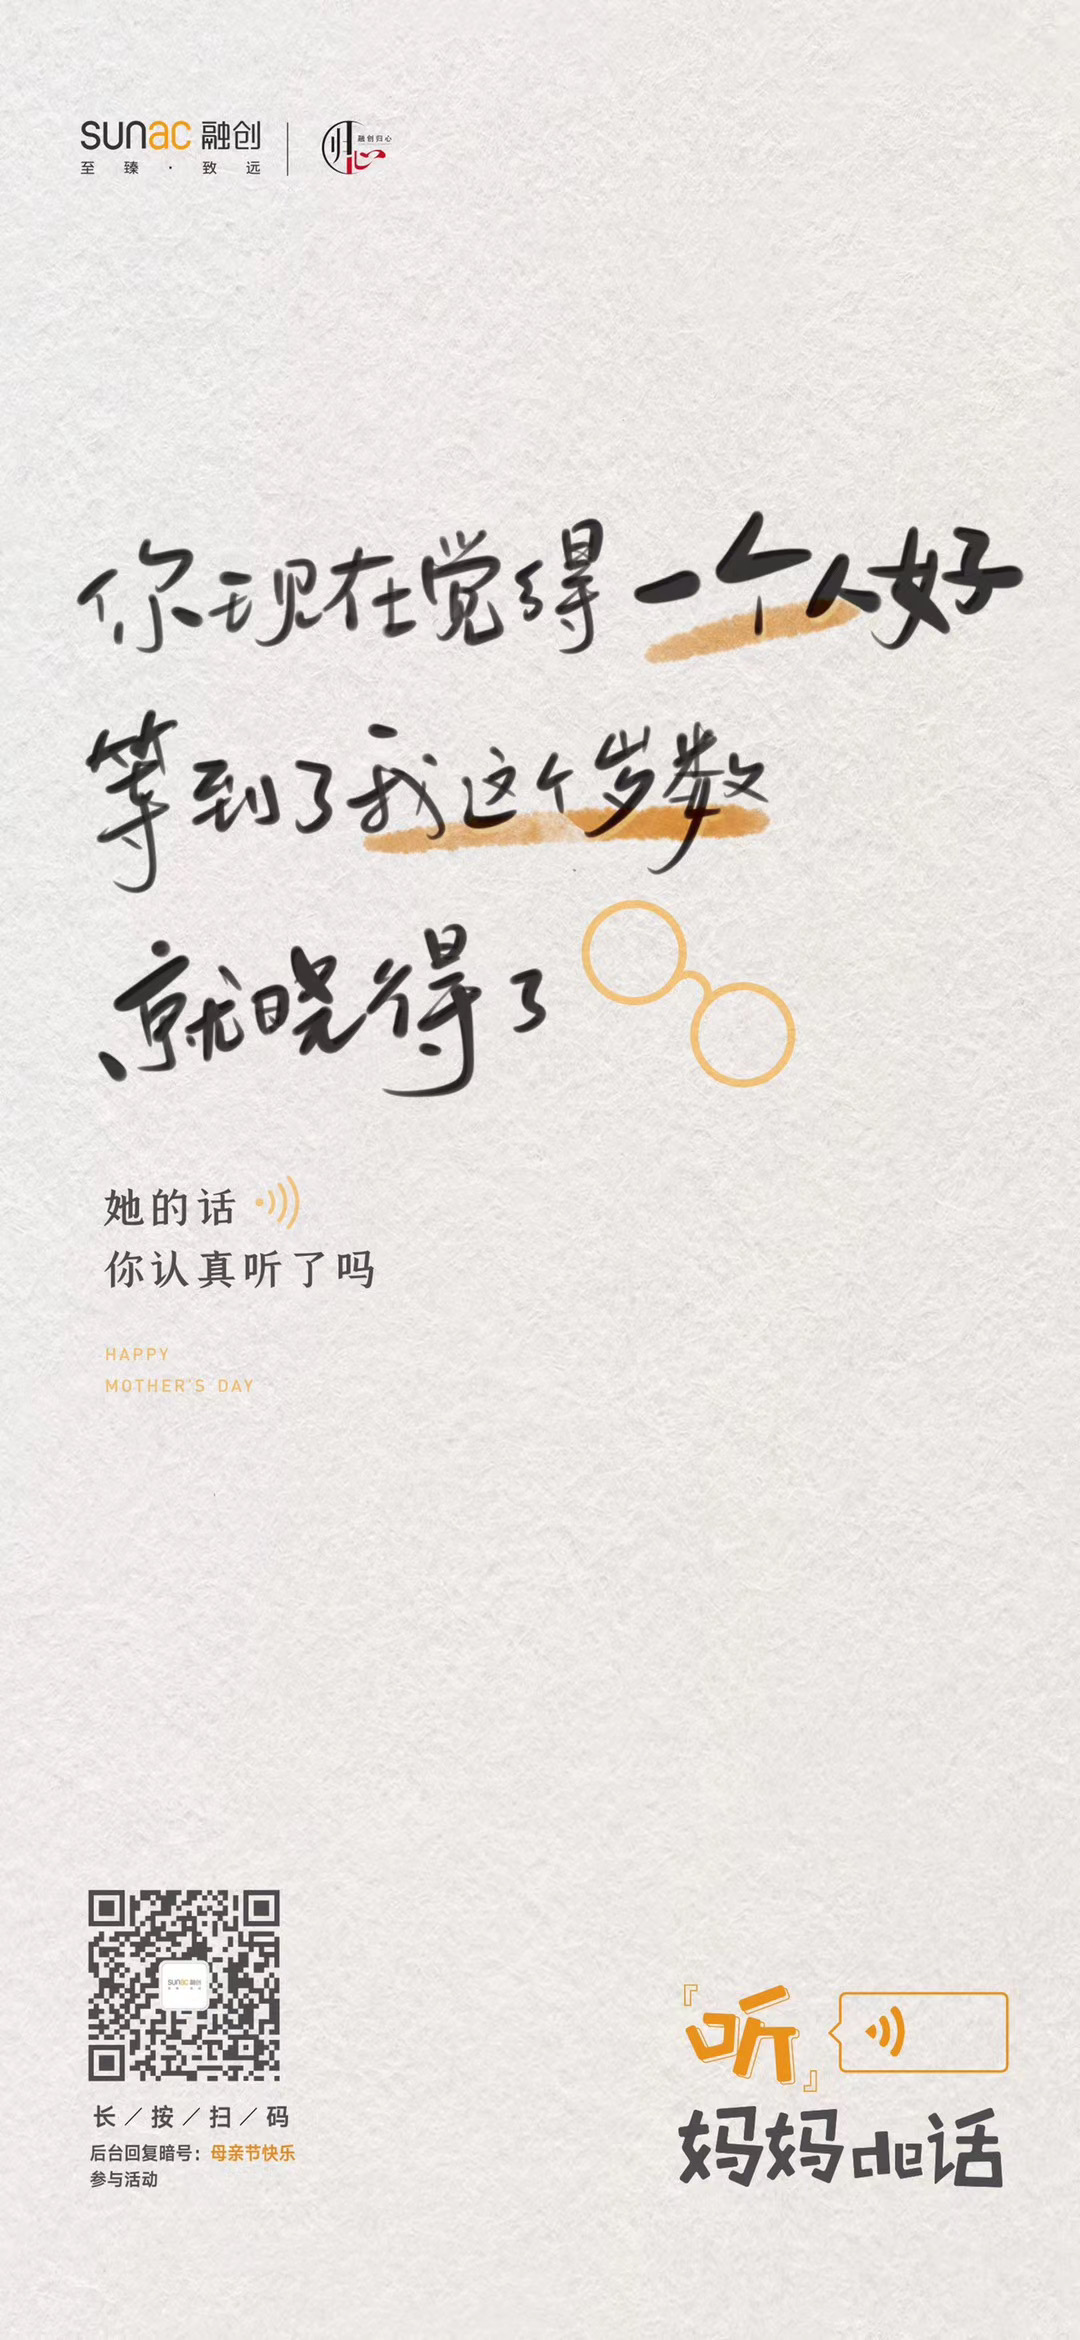 sunac 融创
至臻·致远
归心
融创归心
你现在觉得一个人好
等到了我这个岁数
就晓得了
她的话
你认真听了吗
HAPPY
MOTHER'S DAY
sunac 融创
长／按／扫／码
后台回复暗号：母亲节快乐
参与活动
『听』
妈妈de话